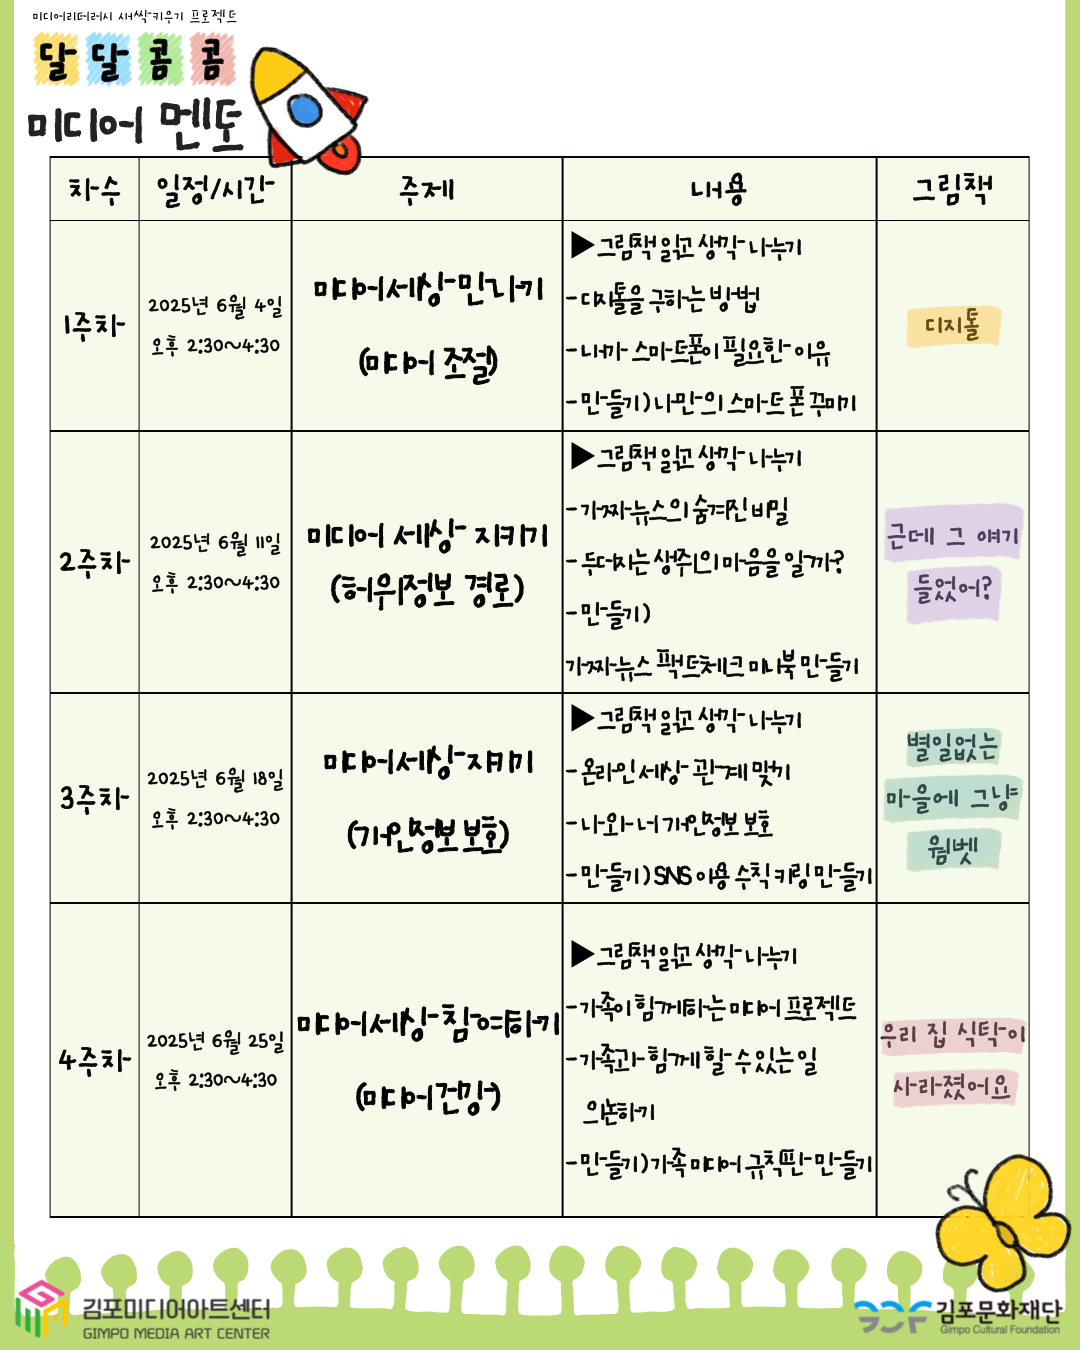 미디어리터러시 새싹키우기 프로젝트
달달콤콤
미디어 멘토
차수 일정/시간 주제 내용 그림책
1주차
2025년 6월 4일
오후 2:30~4:30
미디어 세상 만나기
(미디어 조절)
▶그림책 읽고 생각 나누기
-디지톨을 구하는 방법
-내가 스마트폰이 필요한 이유
-만들기)나만의 스마트폰 꾸미기
디지톨
2주차
2025년 6월 11일
오후 2:30~4:30
미디어 세상 지키기
(허위정보 경로)
▶그림책 읽고 생각 나누기
-가짜뉴스의 숨겨진 비밀
-두더지는 생쥐의 마음을 알까?
-만들기)
가짜뉴스 팩트체크 미니북 만들기
근데 그 얘기
들었어?
3주차
2025년 6월 18일
오후 2:30~4:30
미디어 세상 지키기
(개인정보 보호)
▶그림책 읽고 생각 나누기
-온라인 세상 관계 맺기
-나와 너 개인정보 보호
-만들기)SNS 이용 수칙 키링 만들기
별일없는
마을에 그냥
웜벳
4주차
2025년 6월 25일
오후 2:30~4:30
미디어 세상 참여하기
(미디어 건강)
▶그림책 읽고 생각 나누기
-가족이 함께하는 미디어 프로젝트
-가족과 함께 할 수 있는 일
의논하기
-만들기)가족 미디어 규칙판 만들기
우리 집 식탁이
사라졌어요
김포미디어아트센터
GIMPO MEDIA ART CENTER
김포문화재단
Gimpo Cultural Foundation